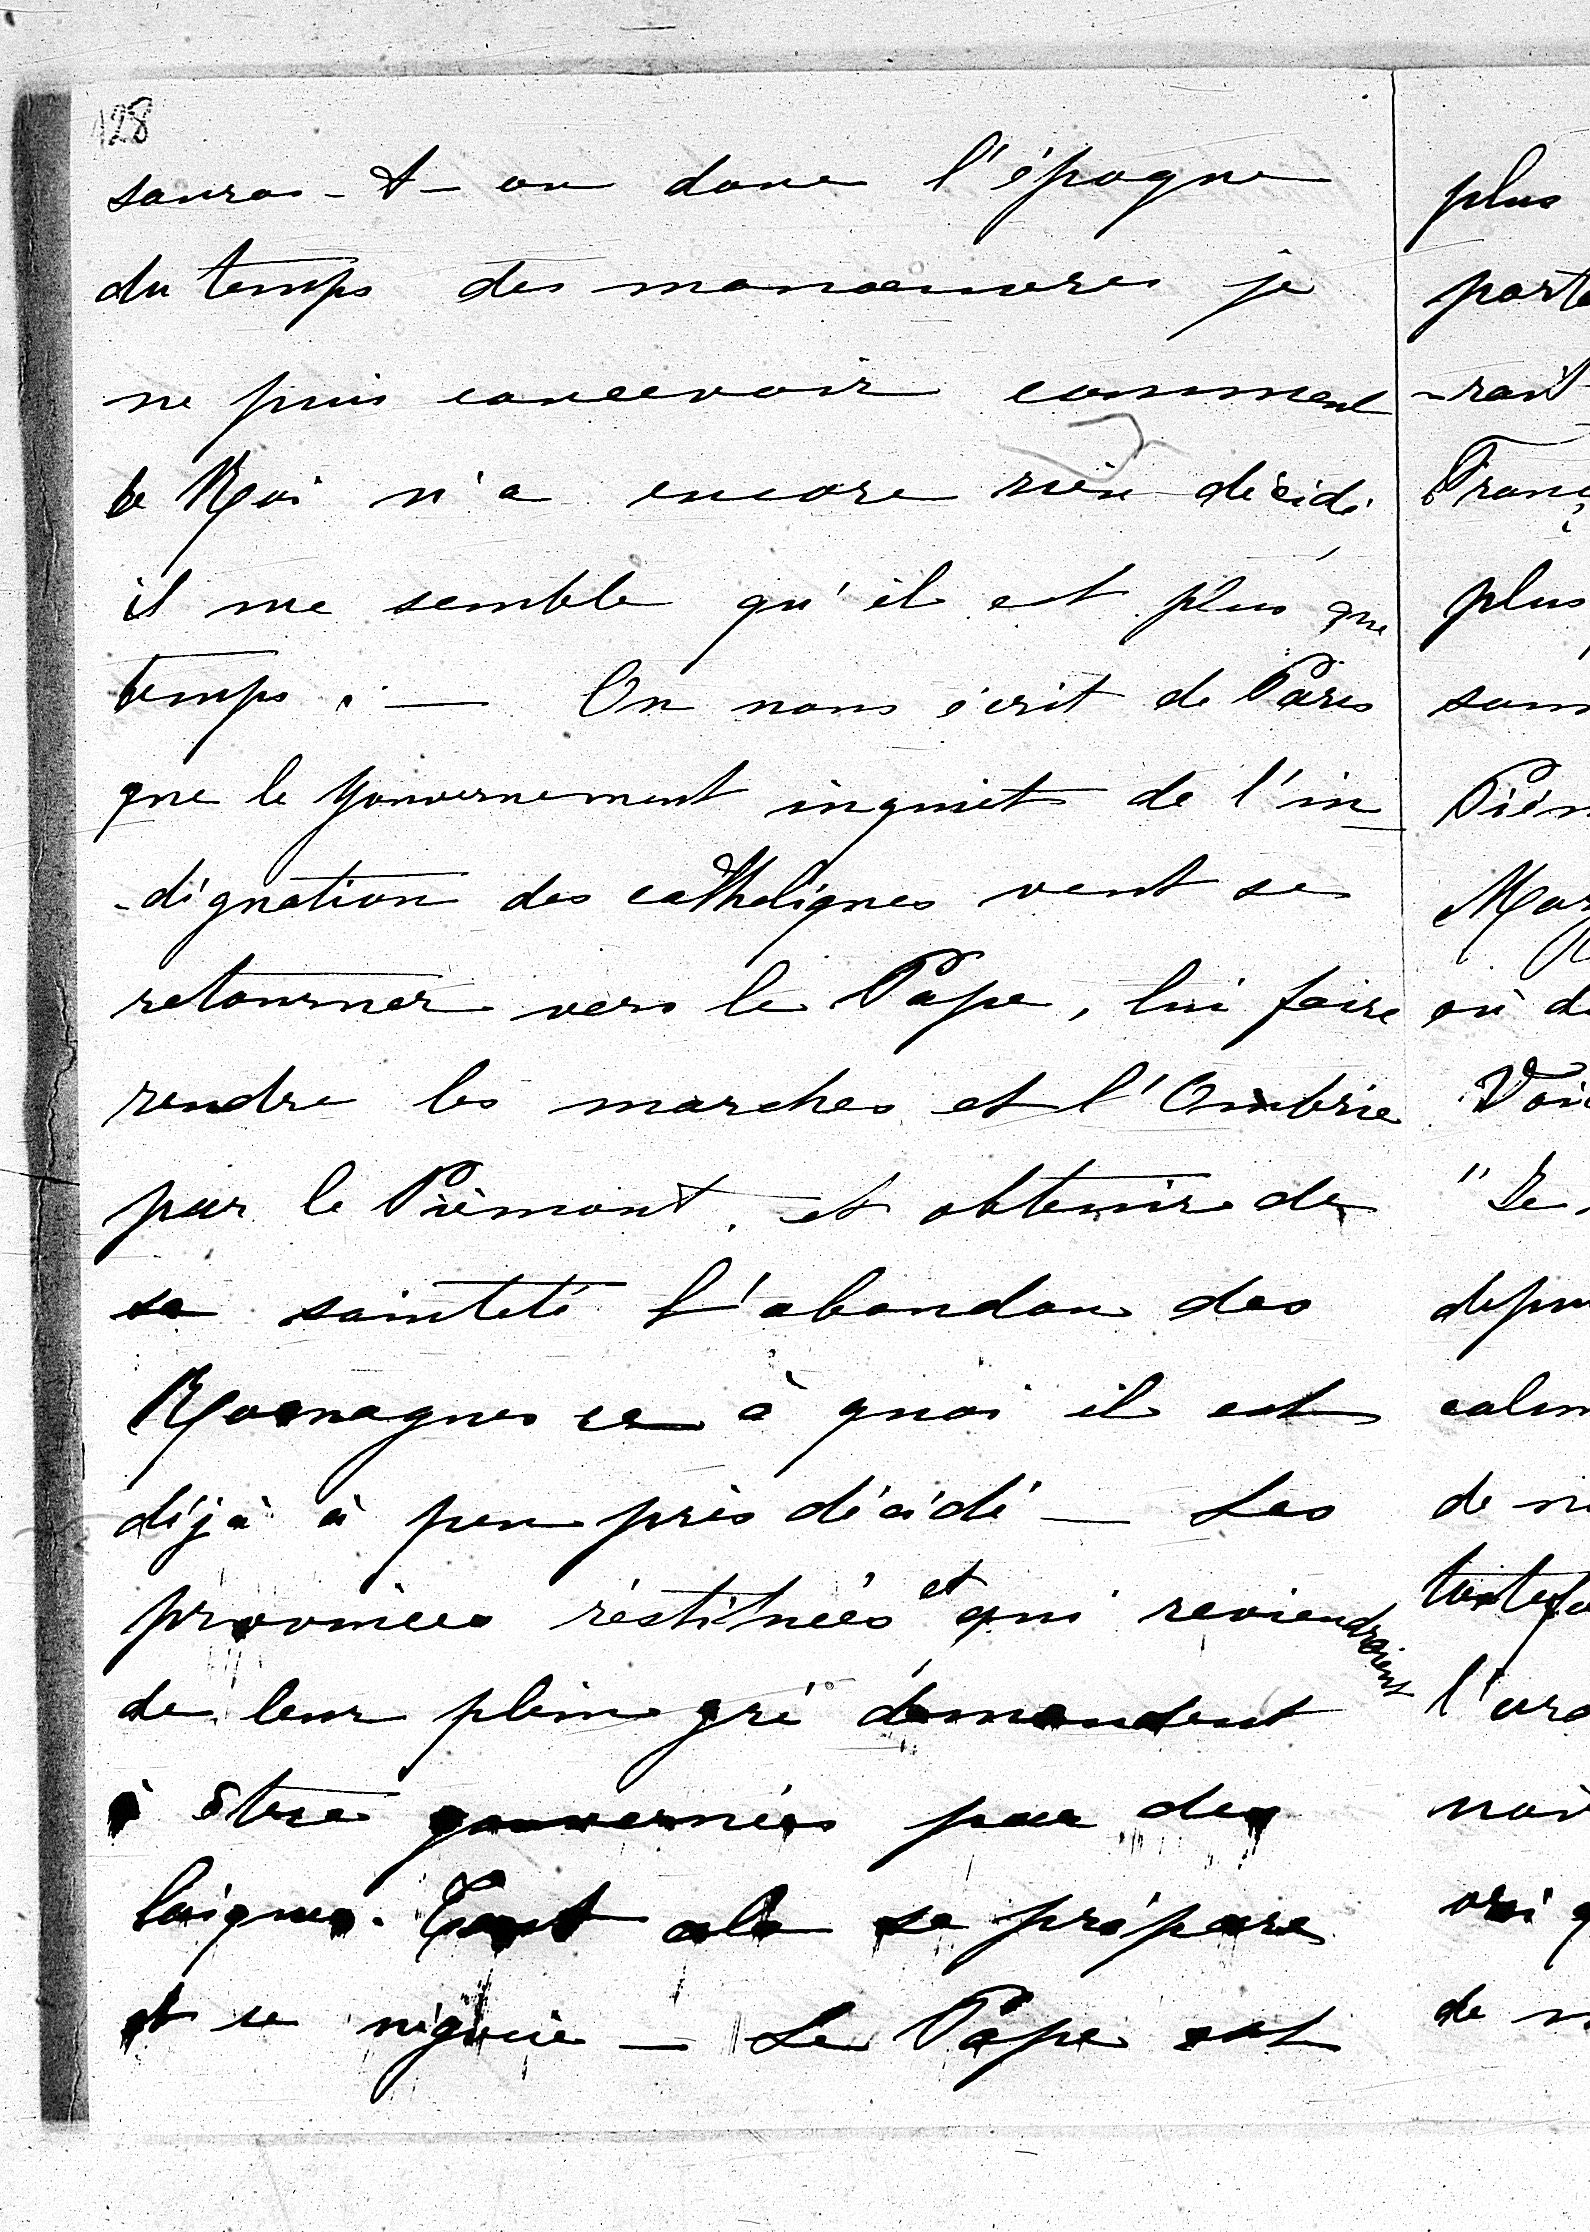 128
saura-t-on donc l'époque
du temps des manoeuvres je
ne puis concevoir comment
le Roi n'a encore rien décidé
il me semble qu'il est plus que
temps. — On nous écrit de Paris
que le Gouvernement inquiet de l'in
-dignation des catholiques veut se
retourner vers le Pape, lui faire
rendre les marches et l'Ombrie
par le Piémont. et obtenir de
sa sainteté l'abandon des
Romagnes ce à quoi il est
déjà à peu près décidé — Les
provinces restituées et qui reviendraient
de leur plein gré demandent
à être gouvernées par des
laïques. Tout cela se prépare
et se négocie — Le Pape est
plus
porte
-rait
Franç
plus
sans
Piém
Mar
où d
Voi
"Le
depui
calm
de n
toutefo
l'ora
noir
de n